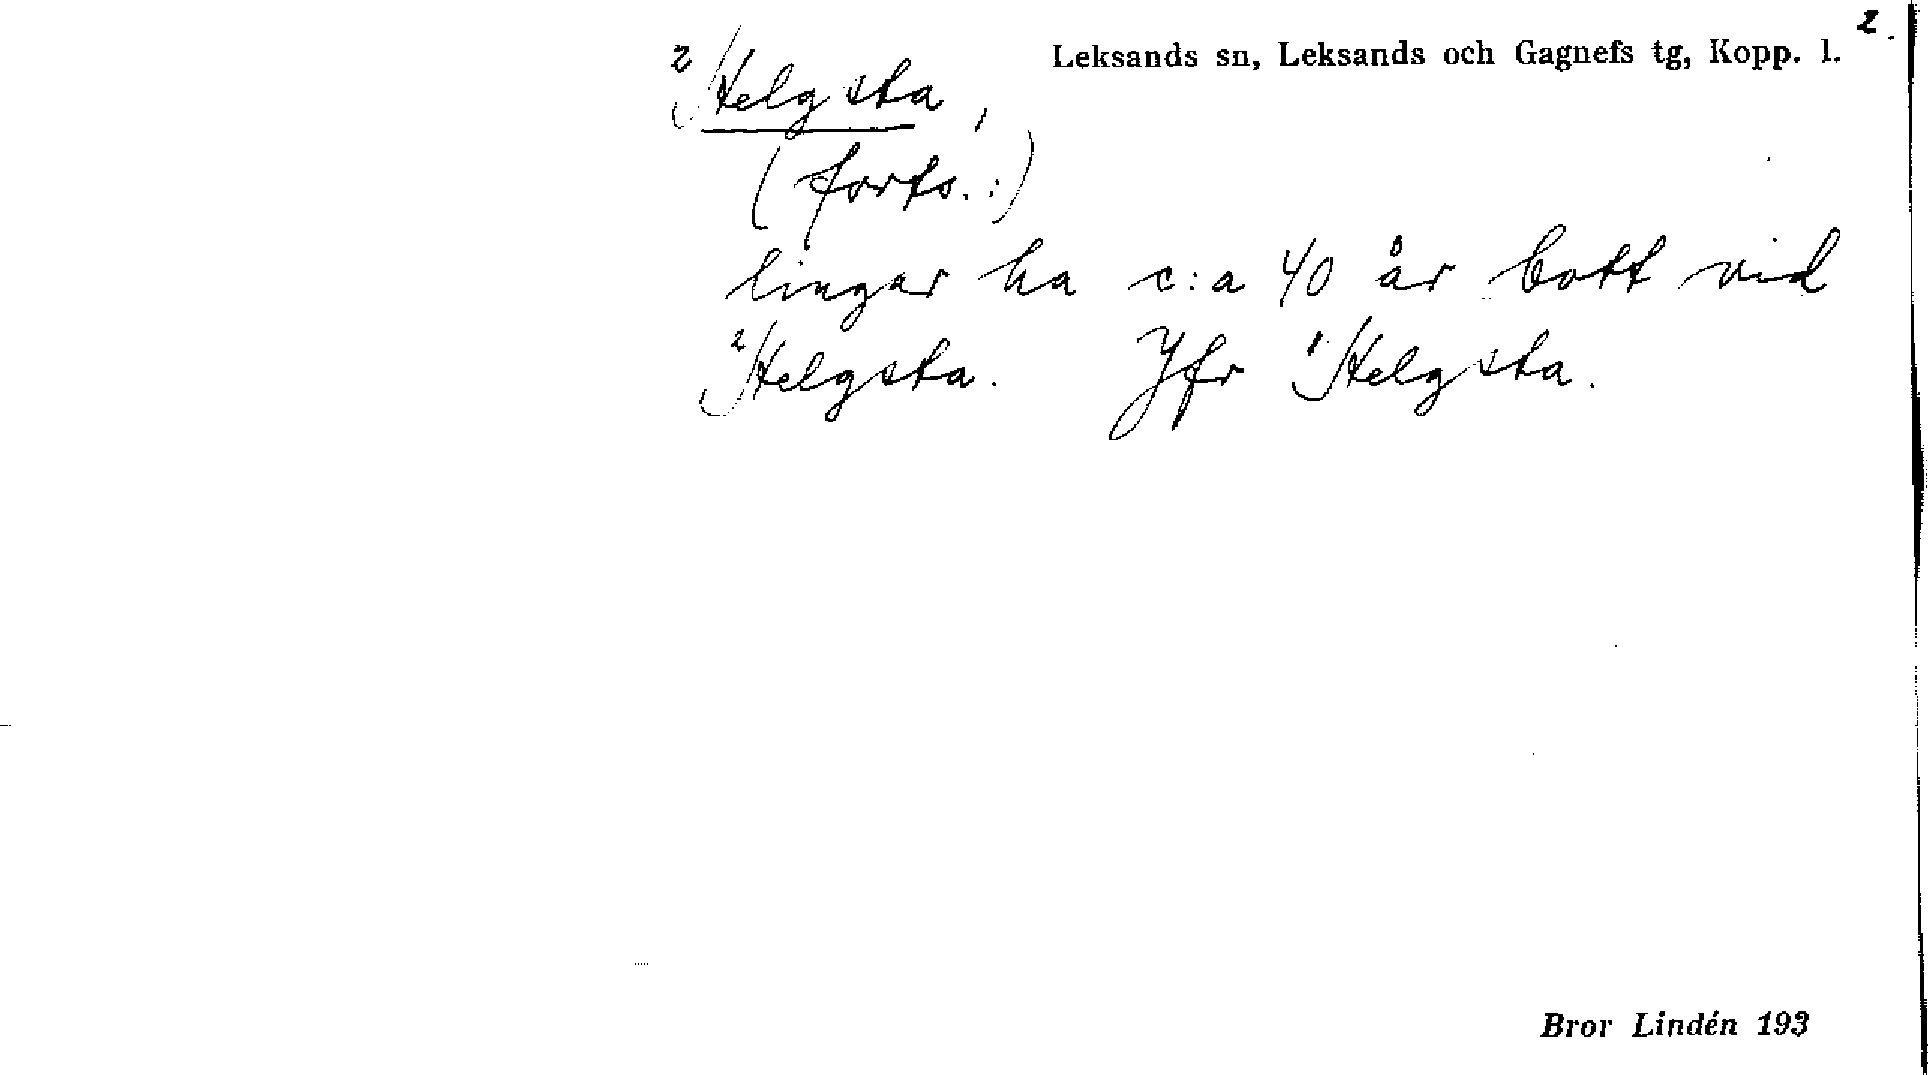 2.
Leksands sn, Leksands och Gagnefs tg, Kopp. l.
²Helgsta,
(forts.:)
lingar ha c:a 40 år bott vid
²Helgsta. Jfr ¹Helgsta.
Bror Lindén 193